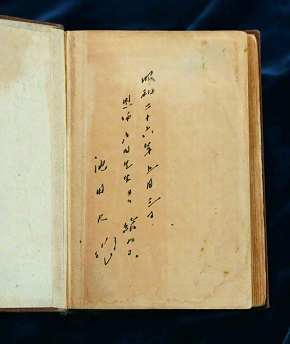 昭和二十六年五月三日
恩師戸田先生より給わる。
池田大作